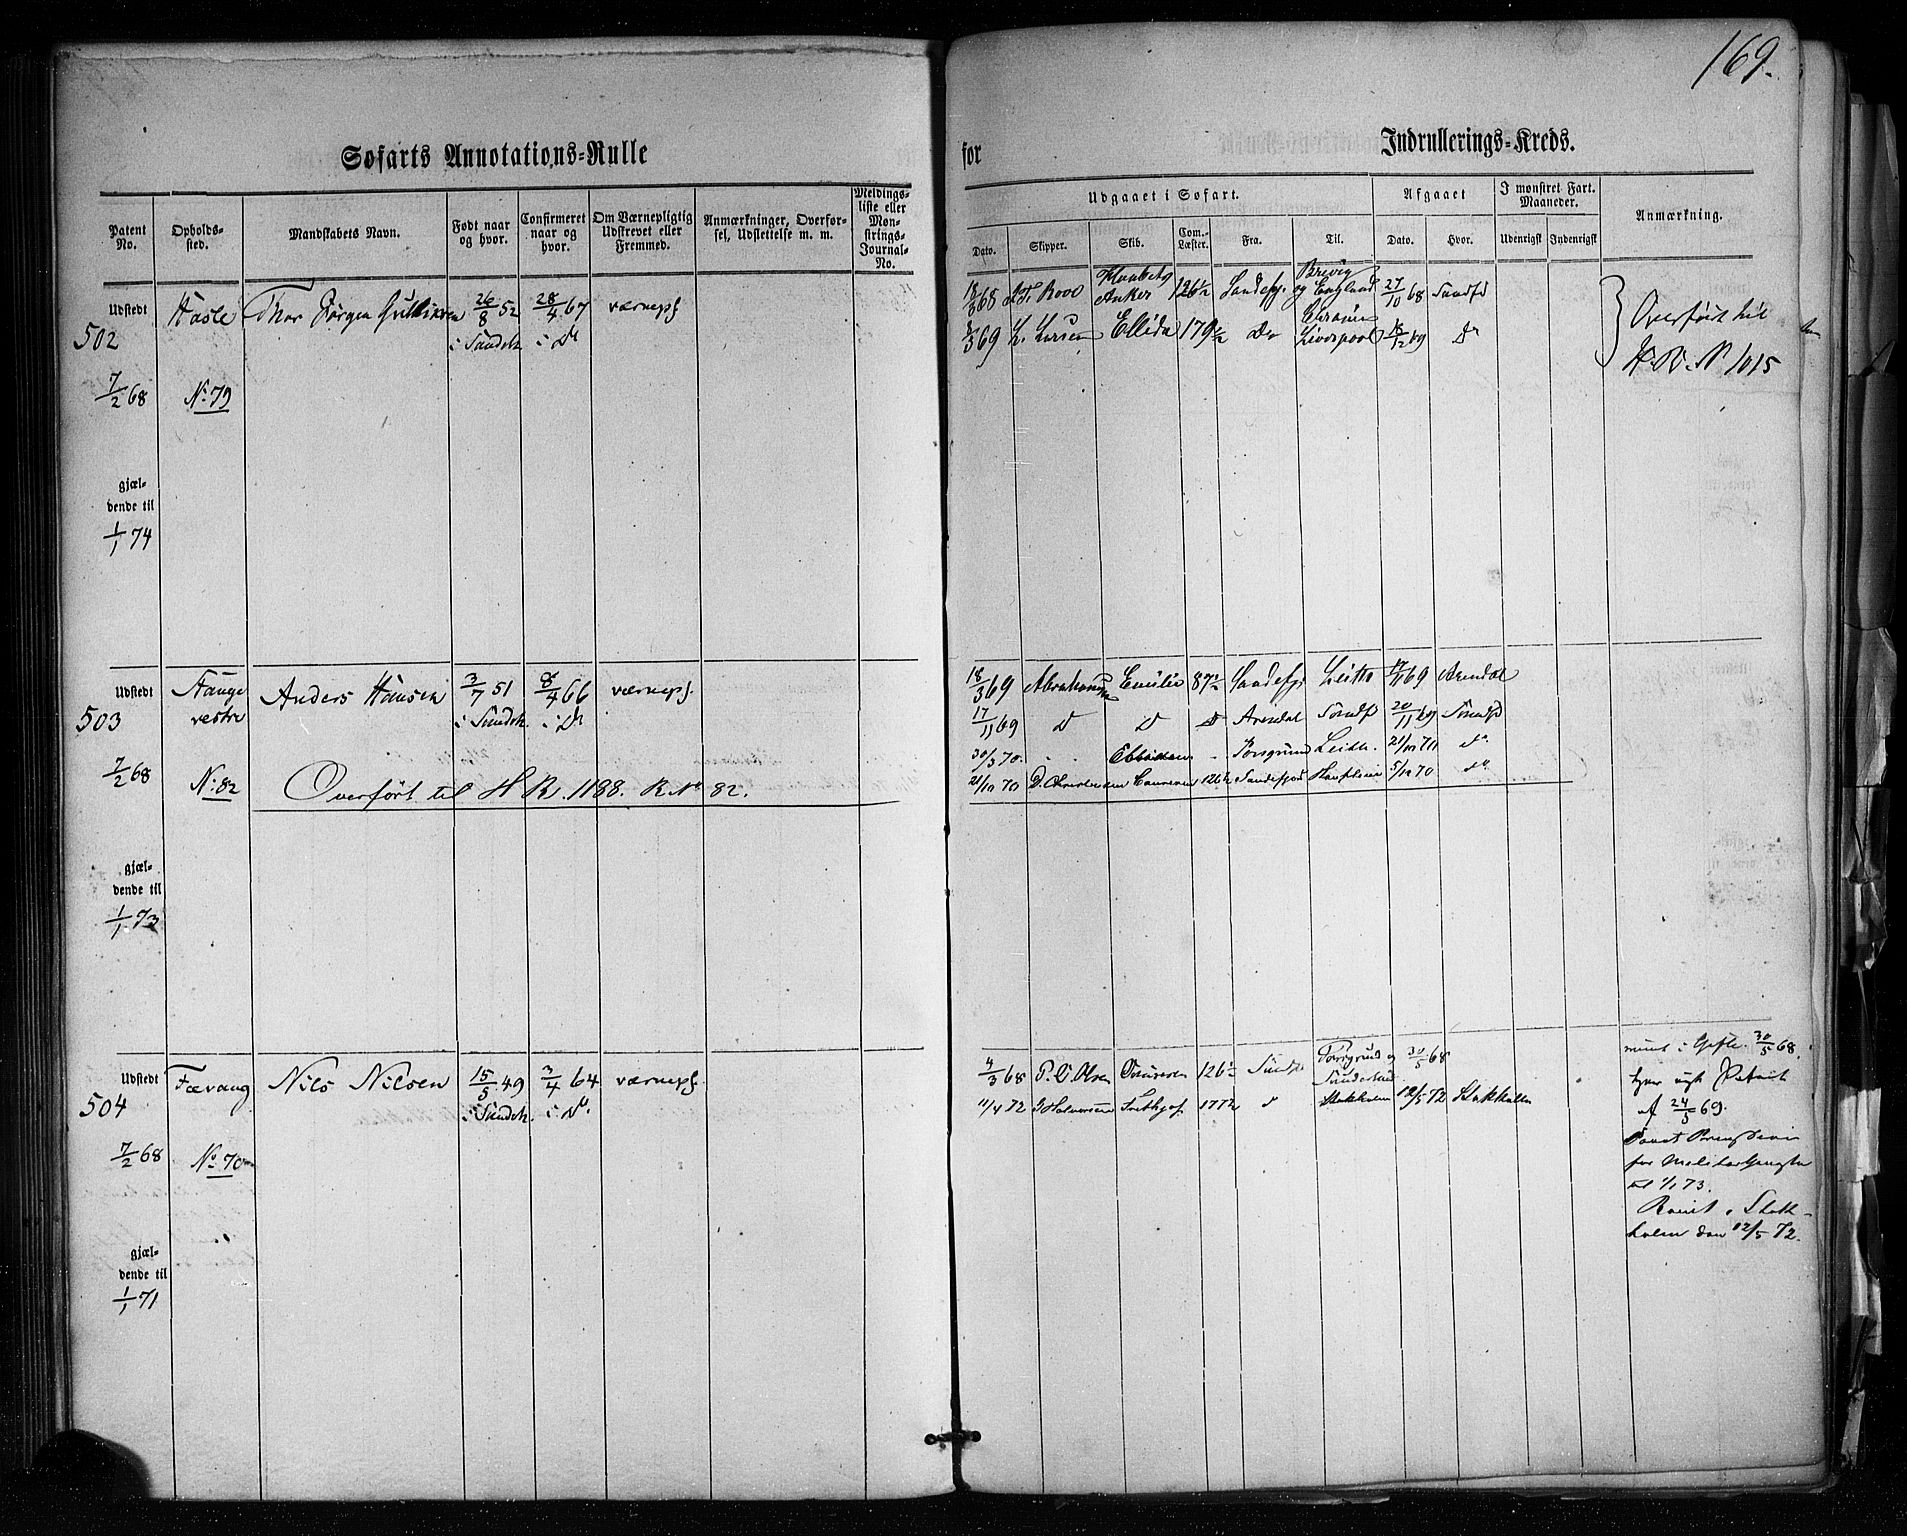 169.
Søfarts Annotations=Rulle
for Indrullerings=Kreds.
Patent No.
Opholdssted.
Mandskabets Navn.
Født naar og hvor.
Confirmeret naar og hvor.
Om Værnepligtig Udskrevet eller Fremmed.
Anmærkninger, Overførsel, Udslettelse m. m.
Meldingsliste eller Mønstrings-Journal-No.
Udgaaet i Søfart.
Afgaaet
I mønstret Fart. Maaneder.
Anmærkning.
Dato.
Skipper.
Skib.
Com.-Læster.
Fra.
Til.
Dato.
Hvor.
Udenrigsk
Indenrigsk
Udstedt
502
7/2 68
gjældende til
1/1 74
Hasle
No. 79
Thor Jørgen Gulliksen
26/8 52
i Sandeh.
28/4 67
i Do
værnepf.
Anker 126½ Sandefj. Brevig og England 27/10 68 Sandfd
L. Larsen Ellida 179½ Do Liverpool Do
Overført til
H. R. No 1015
Udstedt
503
7/2 68
gjældende til
1/1 73
Stange vestre
No. 82
Anders Hansen
3/7 51
i Sandeh.
8/4 66
i Do
værnepf.
Overført til H R. 1188. R No 82.
18/3 69 Abrahamsen Emilie 87½ Sandefj. Leith 17/11 69 Arendal
17/11 69 D D D Arendal Sandfd 20/11 69 Sandfd
30/3 70. Porsgrund Leith. 21/10 70 do
21/10 70 D. Christensen 126½ Sandefjord 5/12 70 do
Udstedt
504
7/2 68
gjældende til
1/1 71
Fævang
No 70
Nils Nilsen
15/5 49
i Sandeh.
3/4 64
i Do.
værnepf.
4/3 68 P. C. Olsen 126½ Sandfd Porsgrund og Sunderland 30/5 68
11/4 72 Frithjof 177½ d Stokholm 12/5 72 Stokholm
rømt i Gefle 30/5 68.
har nyt Patent
af 24/5 69.
til 1/1 73.
Rømt i Stok-
holm den 12/5 72.